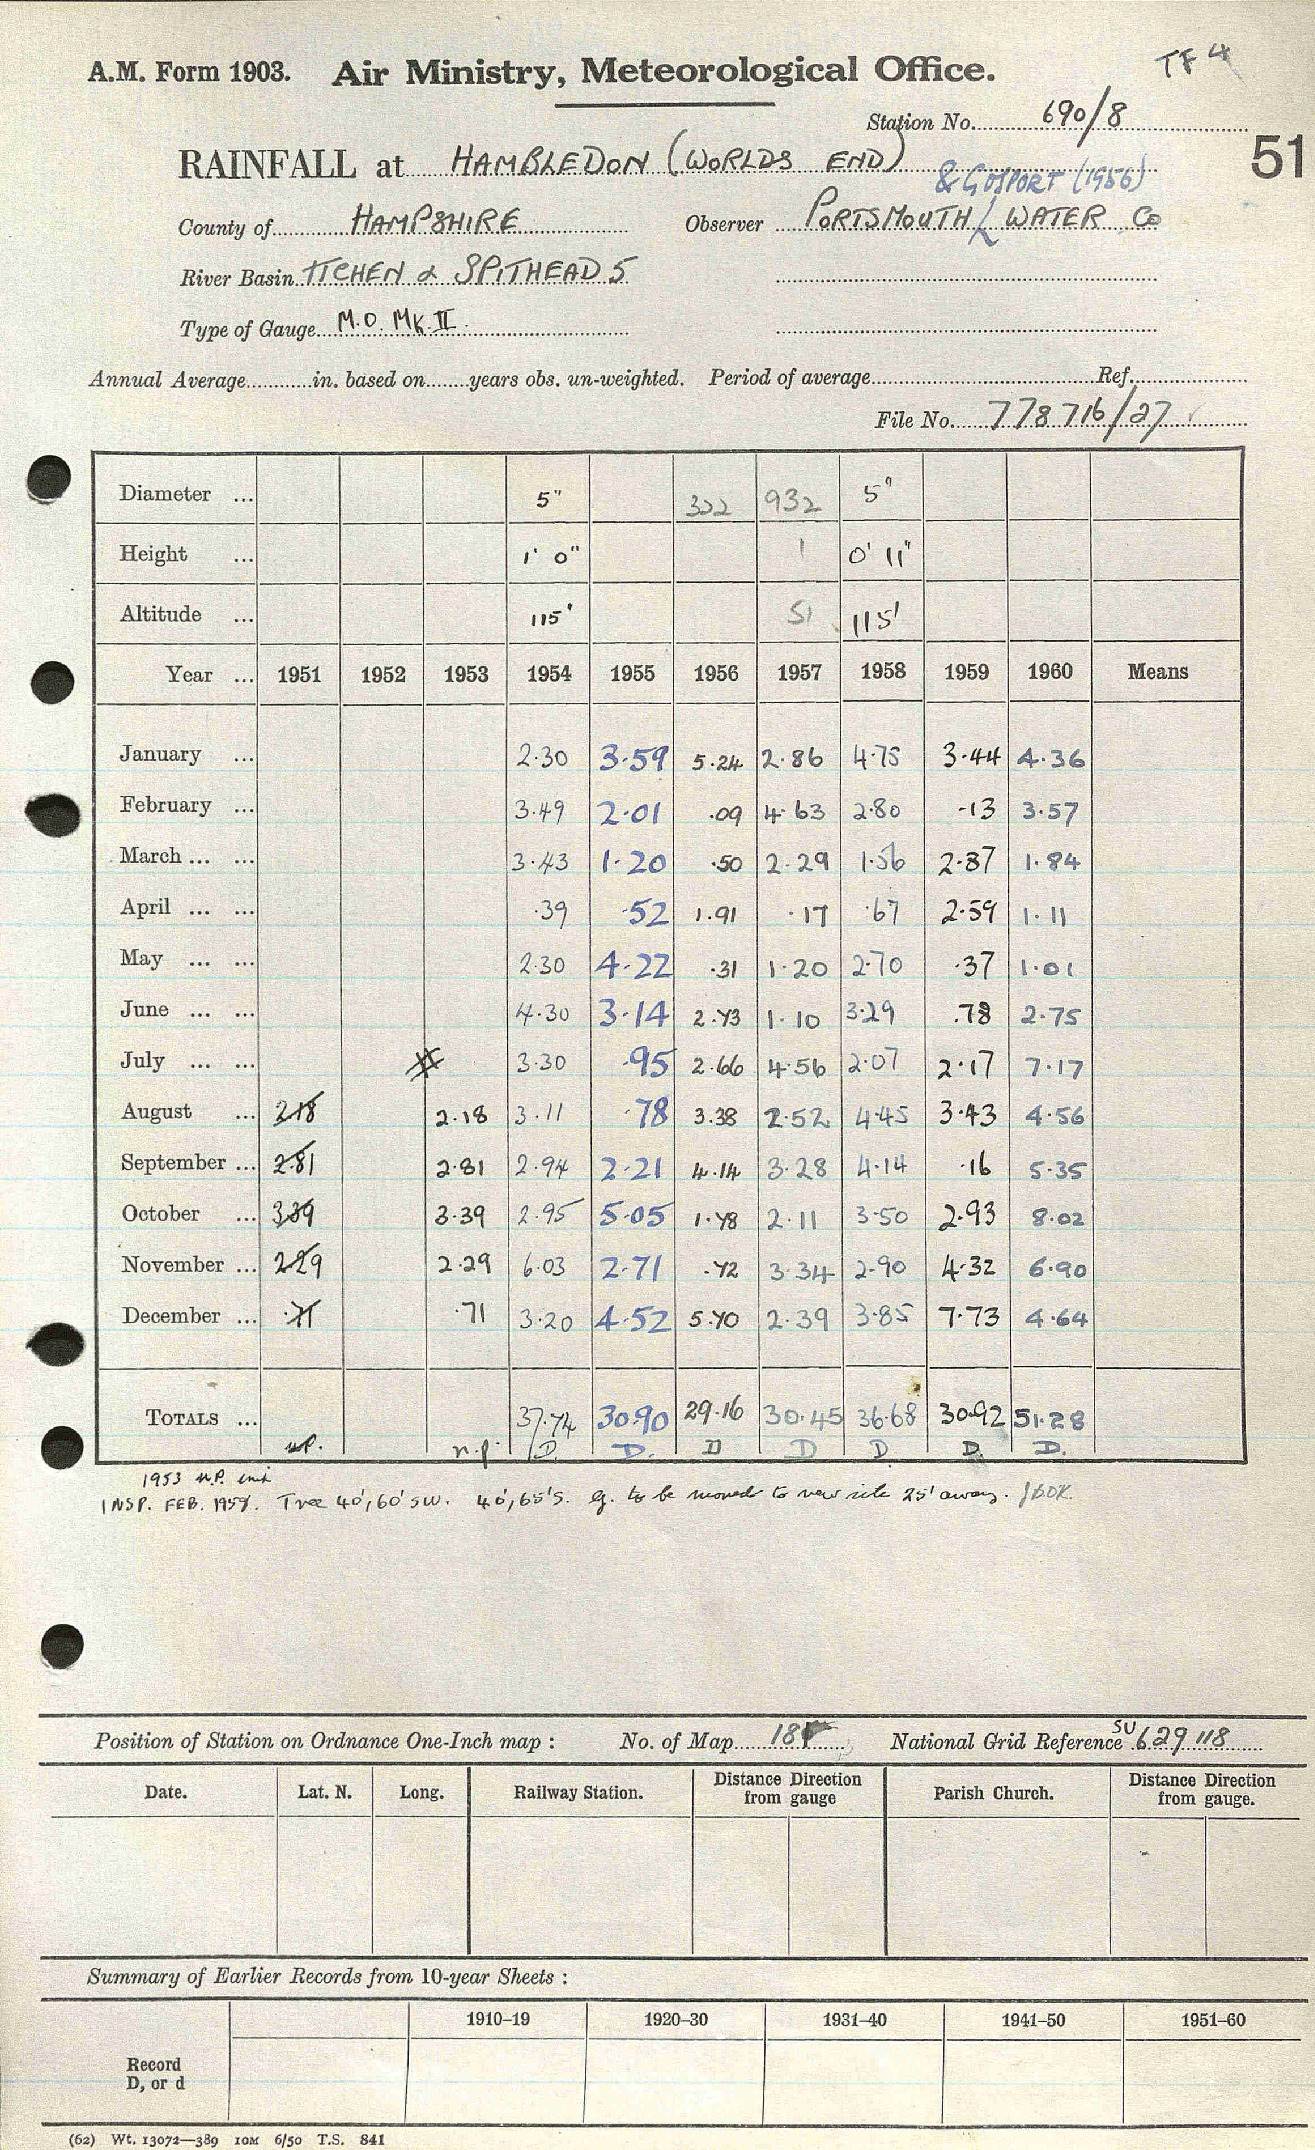 TF 4
A.M. Form 1903. Air Ministry, Meteorological Office.
Station No. 690/8
51
RAINFALL at HAMBLEDON (WORLDS END)
& GOSPORT (1956)
County of HAMPSHIRE Observer PORTSMOUTH WATER Co
River Basin ITCHEN & SPITHEAD 5
Type of Gauge M.O. MK II
Annual Average in. based on years obs. un-weighted. Period of average Ref.
File No. 778716/27
Diameter ... 5" 322 932 5"
Height ... 1' 0" 1 0' 11"
Altitude ... 115' 51 115'
Year ... 1951 1952 1953 1954 1955 1956 1957 1958 1959 1960 Means
January ... 2.30 3.59 5.24 2.86 4.75 3.44 4.36
February ... 3.49 2.01 .09 4.63 2.80 .13 3.57
March ... ... 3.43 1.20 .50 2.29 1.56 2.87 1.84
April ... ... .39 .52 1.91 .17 .67 2.59 1.11
May ... ... 2.30 4.22 .31 1.20 2.70 .37 1.01
June ... ... 4.30 3.14 2.73 1.10 3.29 .78 2.75
July ... ... 3.30 .95 2.66 4.56 2.07 2.17 7.17
August ... 2.18 2.18 3.11 .78 3.38 2.52 4.45 3.43 4.56
September ... 2.81 2.81 2.94 2.21 4.14 3.28 4.14 .16 5.35
October ... 3.39 3.39 2.95 5.05 1.78 2.11 3.50 2.93 8.02
November ... 2.29 2.29 6.03 2.71 .72 3.34 2.90 4.32 6.90
December ... .71 .71 3.20 4.52 5.70 2.39 3.85 7.73 4.64
TOTALS ... 37.74 30.90 29.16 30.45 36.68 30.92 51.28
n.p. n.p. D. D. D D D. D. D.
1953 n.p. 
INSP. FEB. 1957. Tree 40', 60' SW. 40', 65' S. g. to be moved to new site 25' away.
Position of Station on Ordnance One-Inch map : No. of Map 18 National Grid Reference SU 629 118
Date. Lat. N. Long. Railway Station. Distance Direction from gauge Parish Church. Distance Direction from gauge.
Summary of Earlier Records from 10-year Sheets :
1910–19 1920–30 1931–40 1941–50 1951–60
Record
D, or d
(62) Wt. 13072—389 10M 6/50 T.S. 841